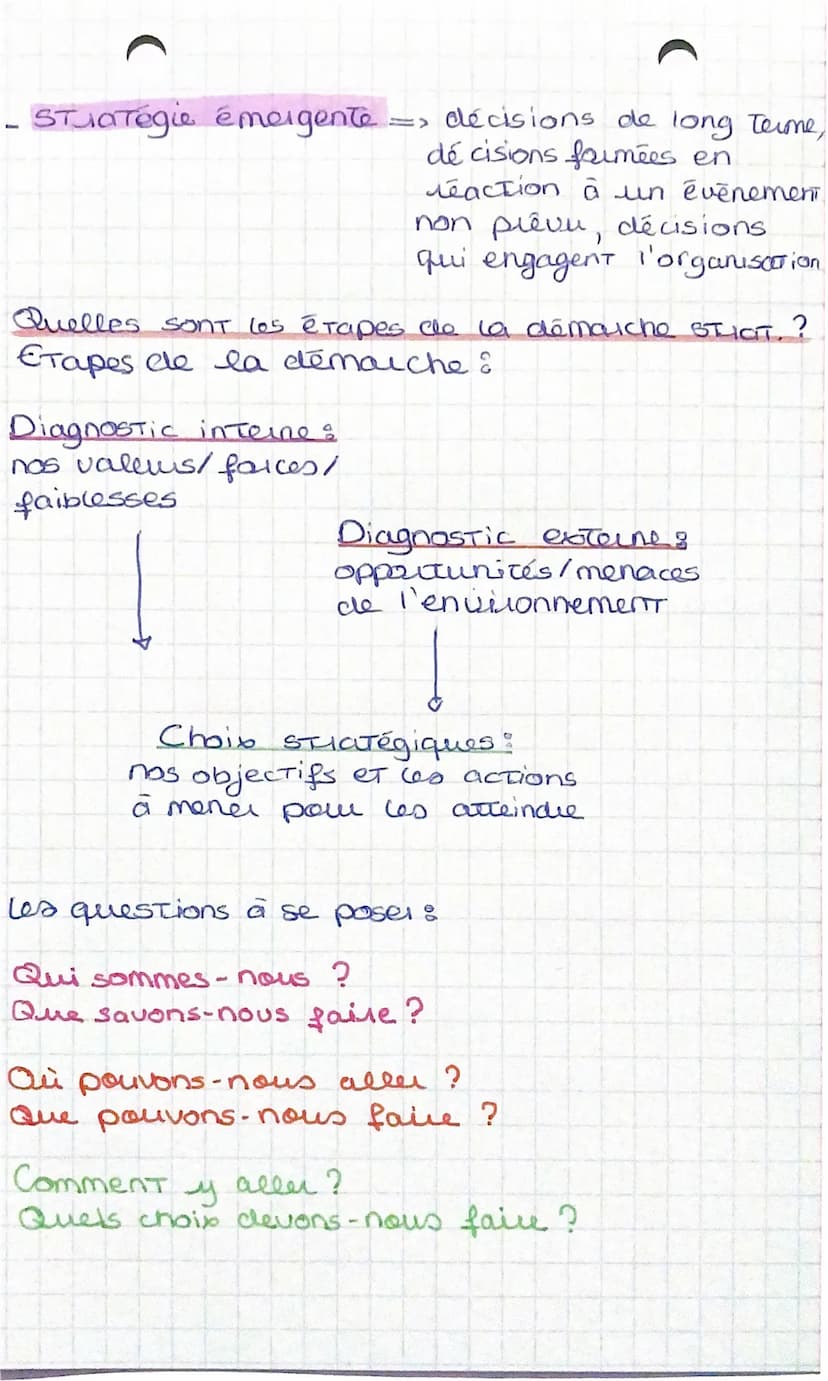 - Stratégie émergente => décisions de long terme,
décisions formées en
réaction à un évènement
non prévu, décisions
qui engagent l'organisation
Quelles sont les étapes de la démarche strat. ?
Etapes de la démarche :
Diagnostic interne :
nos valeurs/forces/
faiblesses
Diagnostic externe :
opportunités/menaces
de l'environnement
Choix stratégiques :
nos objectifs et les actions
à mener pour les atteindre
Les questions à se poser :
Qui sommes-nous ?
Que savons-nous faire ?
Où pouvons-nous aller ?
Que pouvons-nous faire ?
Comment y aller ?
Quels choix devons-nous faire ?